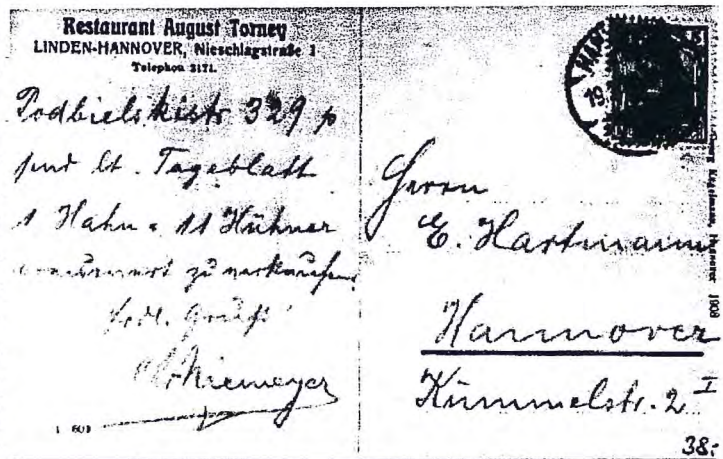 Restaurant August Torney
LINDEN-HANNOVER, Nieschlagstraße 1
Telephon 3171.
Podbielskistr 329 p
sind lt. Tageblatt
1 Hahn u 11 Hühner
zu verkaufen
frdl. Gruß
Niemeyer
Herrn
E. Hartmann
Hannover
Kümmelstr. 2 I
38:
Hannover 1908